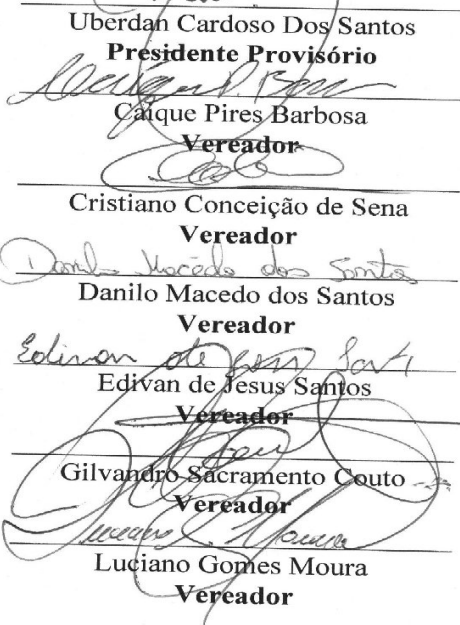 Uberdan Cardoso Dos Santos
Presidente Provisório
Caique Pires Barbosa
Vereador
Cristiano Conceição de Sena
Vereador
Danilo Macedo dos Santos
Danilo Macedo dos Santos
Vereador
Edivan de Jesus Santos
Vereador
Gilvandro Sacramento Couto
Vereador
Luciano Gomes Moura
Vereador